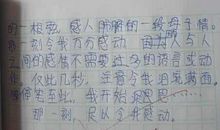 的一根救,感人肺腑的一段母子情。
那一刻令我万分感动,因为人与人
之间的感情不需要过多的语言或动
作,仅此几秒,足会令我泪流满面。
停笔至此,我开始
那一刻,足以令我感动。